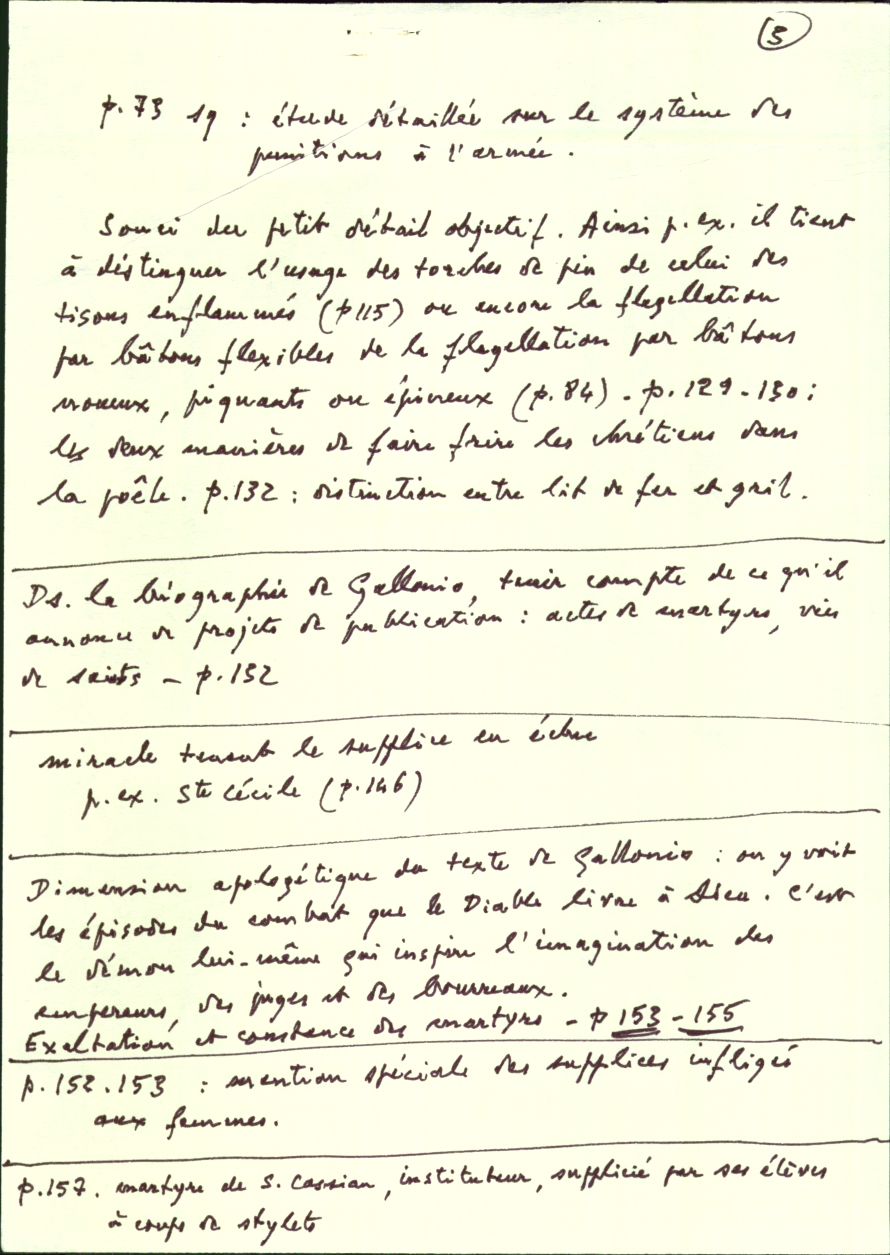 3
p. 73 sq : étude détaillée sur le système des
punitions à l'armée.
Souci du petit détail objectif. Ainsi p. ex. il tient
à distinguer l'usage des torches de pin de celui des
tisons enflammés (p 115) ou encore la flagellation
par bâtons flexibles de la flagellation par bâtons
noueux, piquants ou épineux (p. 84) - p. 129 - 130 :
les deux manières de faire frire les chrétiens dans
la poêle. p. 132 : distinction entre lit de fer et gril.
Ds. la biographie de Gallonio, tenir compte de ce qu'il
annonce de projets de publication : actes de martyrs, vies
de saints - p. 152
miracle tenant le supplice en échec
p. ex. Ste Cécile (p. 146)
Dimension apologétique du texte de Gallonio : on y voit
les épisodes du combat que le Diable livre à Dieu. C'est
le démon lui-même qui inspire l'imagination des
empereurs, des juges et des bourreaux.
Exaltation et constance des martyrs - p 153 - 155
p. 152. 153 : mention spéciale des supplices infligés
aux femmes.
p. 157. martyre de S. Cassian, instituteur, supplicié par ses élèves
à coups de stylets